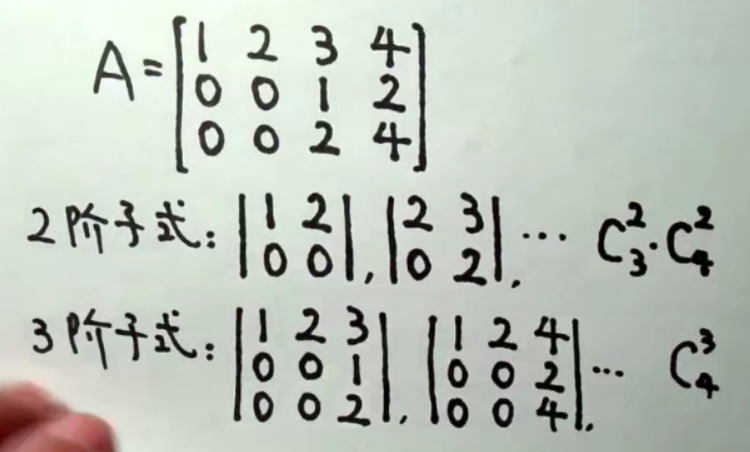 A = [1 2 3 4
0 0 1 2
0 0 2 4]
2阶子式: |1 2 0 0|, |2 3 0 2|, ... C₃²·C₄²
3阶子式: |1 2 3 0 0 1 0 0 2|, |1 2 4 0 0 2 0 0 4|, ... C₄³